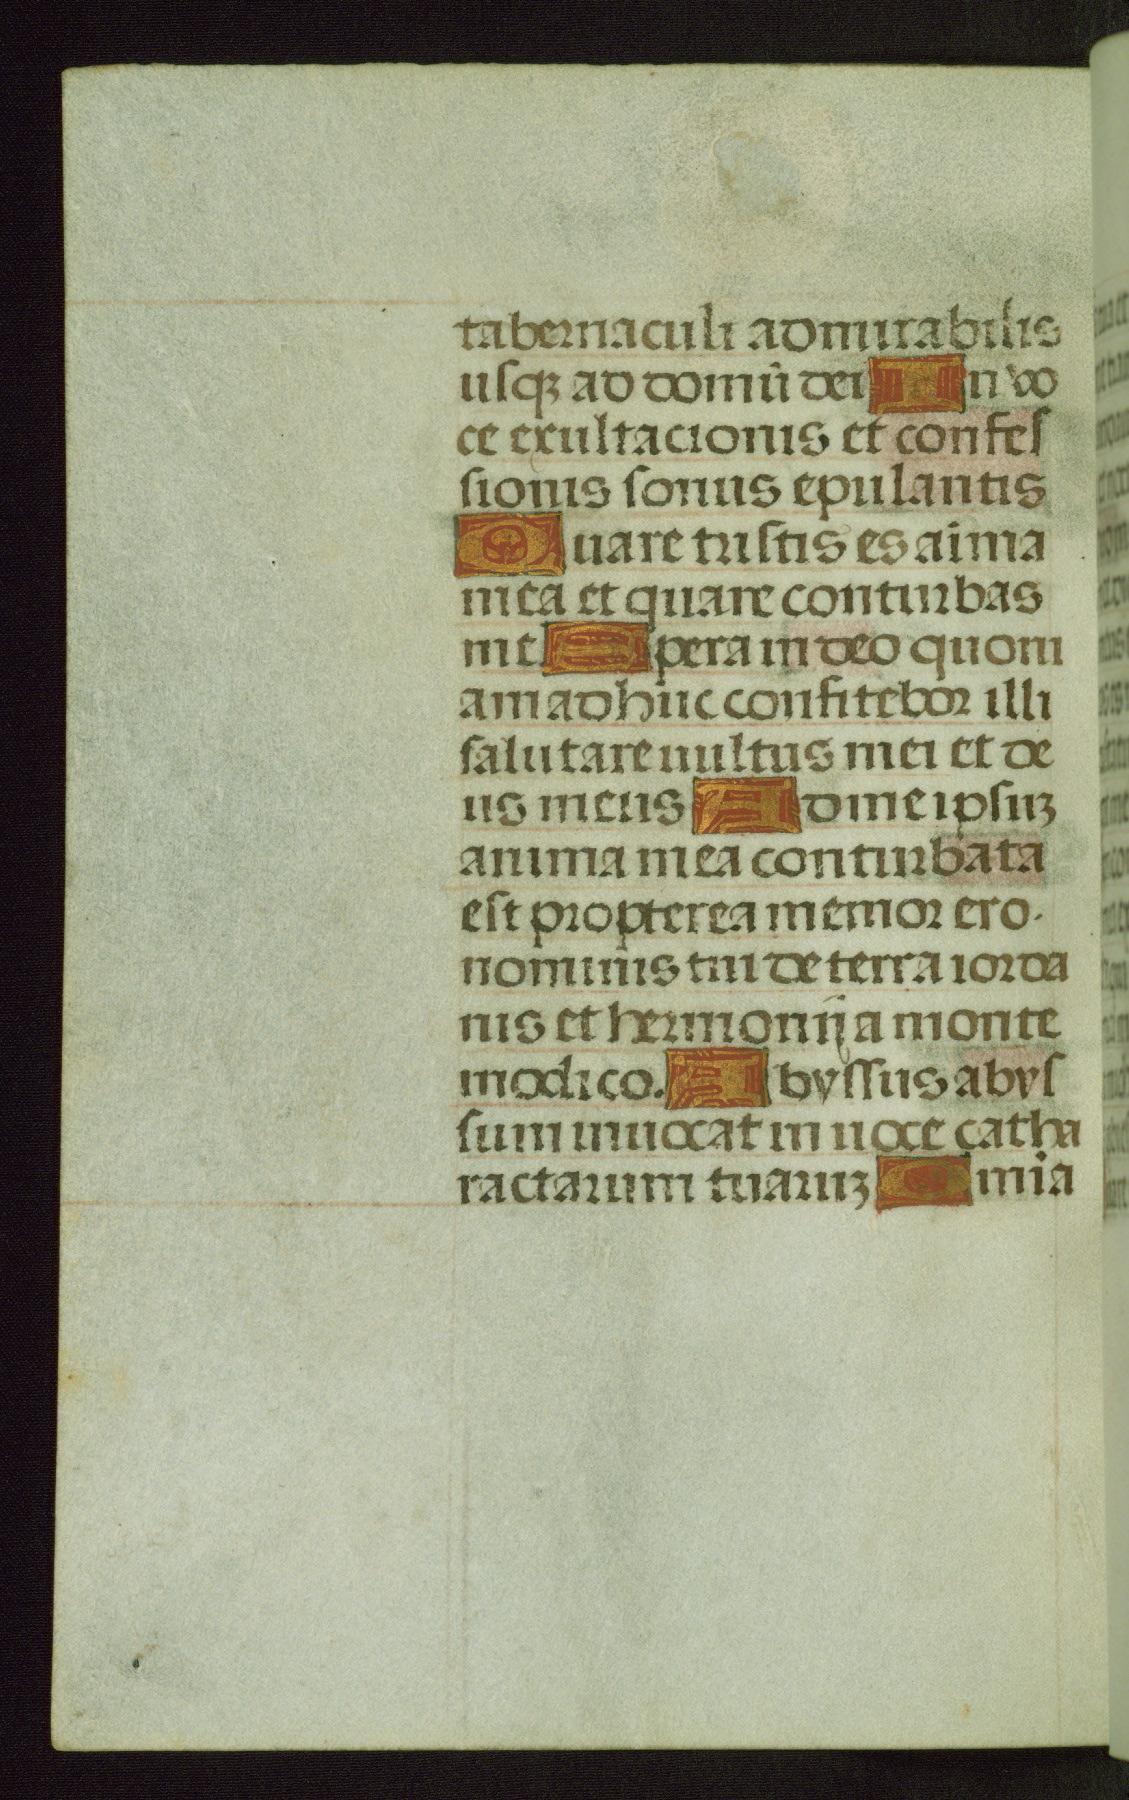 tabernaculi admirabilis
usqꝫ ad domū dei In vo
ce exultacionis et confes
sionis sonus epulantis
Quare tristis es aīma
mea et quare conturbas
me Spera in deo quoni
am adhuc confitebor illi
salutare uultus mei et de
us meus Ad me ipsuꝫ
anima mea conturbata
est propterea memor ero.
nominis tui de terra iorda
nis et hermonij a monte
modico. Abyssus abys
sum inuocat in uoce catha
ractarum tuaruꝫ Omia